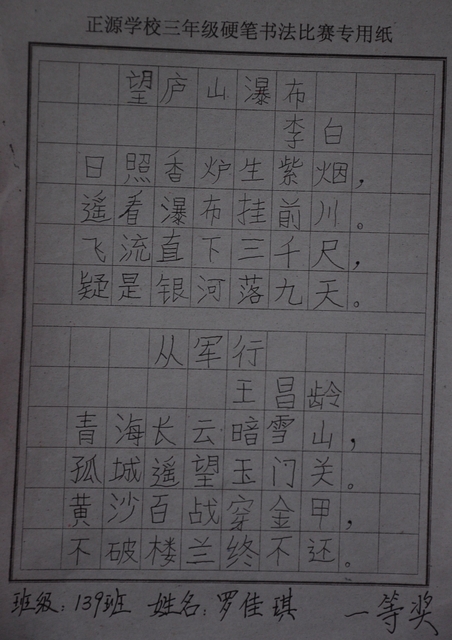 正源学校三年级硬笔书法比赛专用纸
望庐山瀑布
李白
日照香炉生紫烟，
遥看瀑布挂前川。
飞流直下三千尺，
疑是银河落九天。
从军行
王昌龄
青海长云暗雪山，
孤城遥望玉门关。
黄沙百战穿金甲，
不破楼兰终不还。
班级：139班 姓名：罗佳琪 一等奖